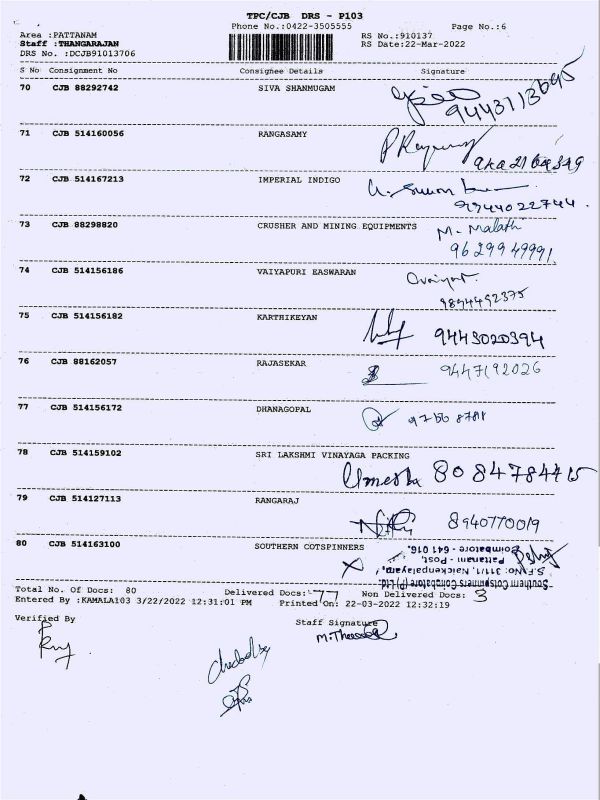 TPC/CJB DRS - P103
Phone No.:0422-3505555 Page No.:6
Area :PATTANAM RS No.:910137
Staff :THANGARAJAN RS Date:22-Mar-2022
DRS No. :DCJB91013706
S No Consignment No Consignee Details Signature
70 CJB 88292742 SIVA SHANMUGAM
9443113695
71 CJB 514160056 RANGASAMY
72 CJB 514167213 IMPERIAL INDIGO
9944022744
73 CJB 88298820 CRUSHER AND MINING EQUIPMENTS M. Malathi
9629949991
74 CJB 514156186 VAIYAPURI EASWARAN
9894492375
75 CJB 514156182 KARTHIKEYAN
9443020394
76 CJB 88162057 RAJASEKAR 9447192026
77 CJB 514156172 DHANAGOPAL
78 CJB 514159102 SRI LAKSHMI VINAYAGA PACKING
Umesha 8084784415
79 CJB 514127113 RANGARAJ
8940770019
80 CJB 514163100 SOUTHERN COTSPINNERS
Southern Cotspinners Coimbatore (P) Ltd.,
S.F.No. 311/1, Naickenpalayam,
Pattanam - Post,
Coimbatore - 641 016.
Total No. Of Docs: 80 Delivered Docs: 77 Non Delivered Docs: 3
Entered By :KAMALA103 3/22/2022 12:31:01 PM Printed On: 22-03-2022 12:32:19
Verified By Staff Signature